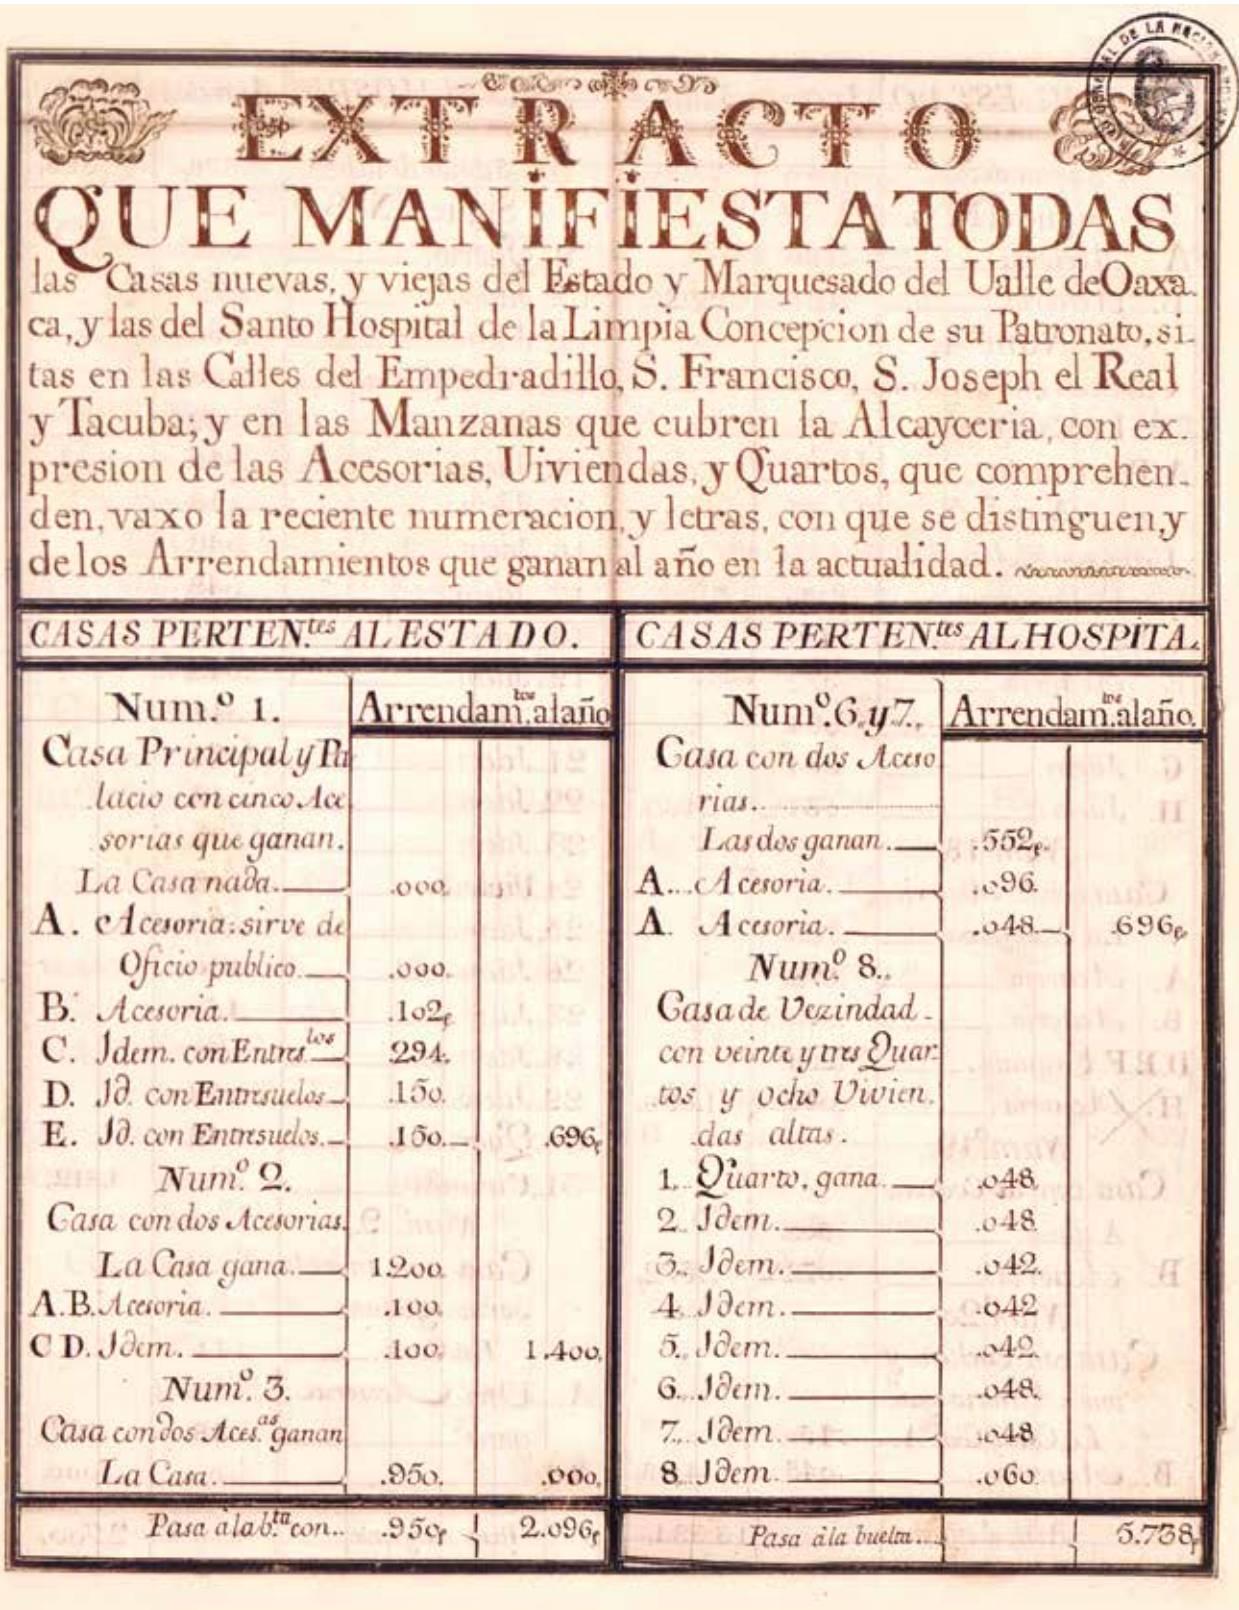 EXTRACTO
QUE MANIFIESTA TODAS
las Casas nuevas, y viejas del Estado y Marquesado del Ualle de Oaxa.
ca, y las del Santo Hospital de la Limpia Concepcion de su Patronato, si.
tas en las Calles del Empedradillo, S. Francisco, S. Joseph el Real
y Tacuba; y en las Manzanas que cubren la Alcayceria, con ex.
presion de las Acesorias, Uiviendas, y Quartos, que comprehen.
den, vaxo la reciente numeracion, y letras, con que se distinguen, y
de los Arrendamientos que ganan al año en la actualidad.
CASAS PERTEN.tes AL ESTADO.
Num.º 1. Arrendam.tos al año
Casa Principal y Pa
lacio con cinco Ace
sorias que ganan.
La Casa nada. .000.
A. Acesoria: sirve de
Oficio publico. .000.
B. Acesoria. .102p
C. Idem. con Entres.los 294.
D. Id. con Entresuelos .150.
E. Id. con Entresuelos .150. .696p
Num.º 2.
Casa con dos Acesorias.
La Casa gana. 1.200.
A.B. Acesoria. .100.
C D. Idem. .100. 1.400.
Num.º 3.
Casa con dos Aces.as ganan
La Casa .950. .000.
Pasa à la b.ta con .. .950p 2.096p
CASAS PERTEN.tes AL HOSPITA.
Num.º 6. y 7. Arrendam.tos al año.
Casa con dos Aceso
rias.
Las dos ganan .552p.
A... Acesoria. .096.
A. Acesoria. .048. .696p
Num.º 8..
Casa de Vezindad
con veinte y tres Quar
tos y ocho Vivien.
das altas.
1. Quarto, gana. .048.
2. Idem. .048.
3. Idem. .042.
4. Idem. .042
5. Idem. .042.
6. Idem. .048.
7. Idem. .048
8 Idem. .060.
Pasa à la buelta.. 5.738p